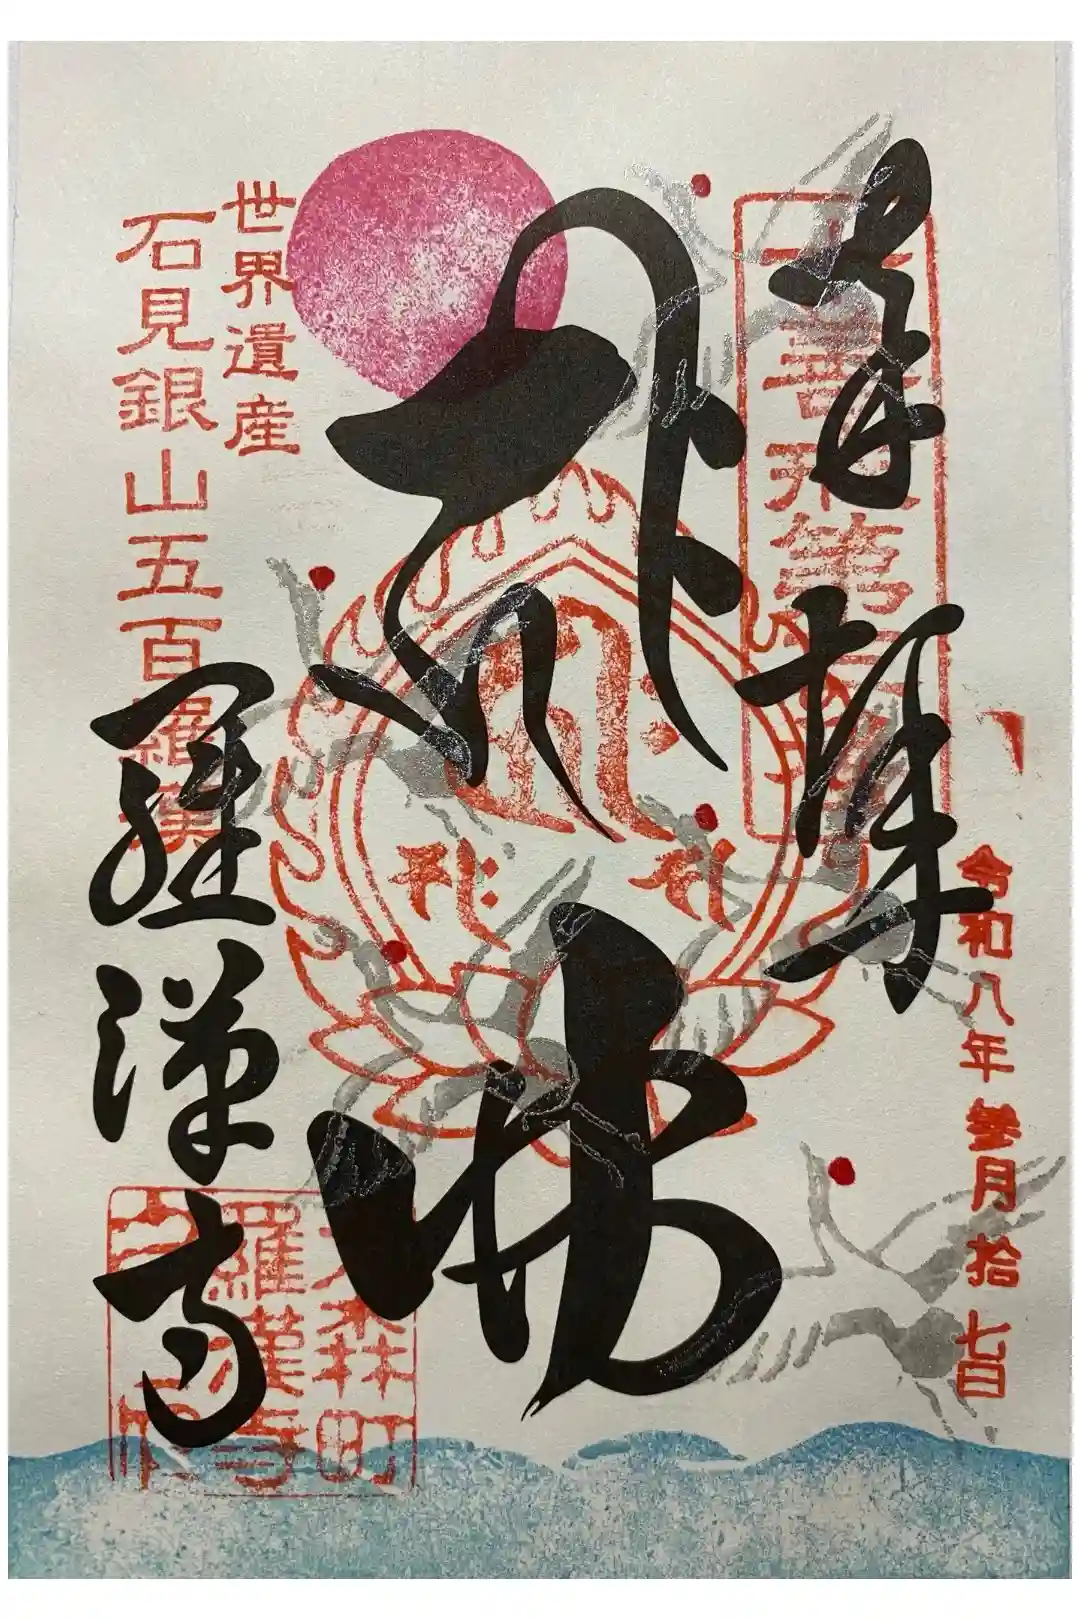 奉拝
令和八年参月拾七日
佛
世界遺産
石見銀山五百羅漢
羅漢寺
大森町
羅漢寺